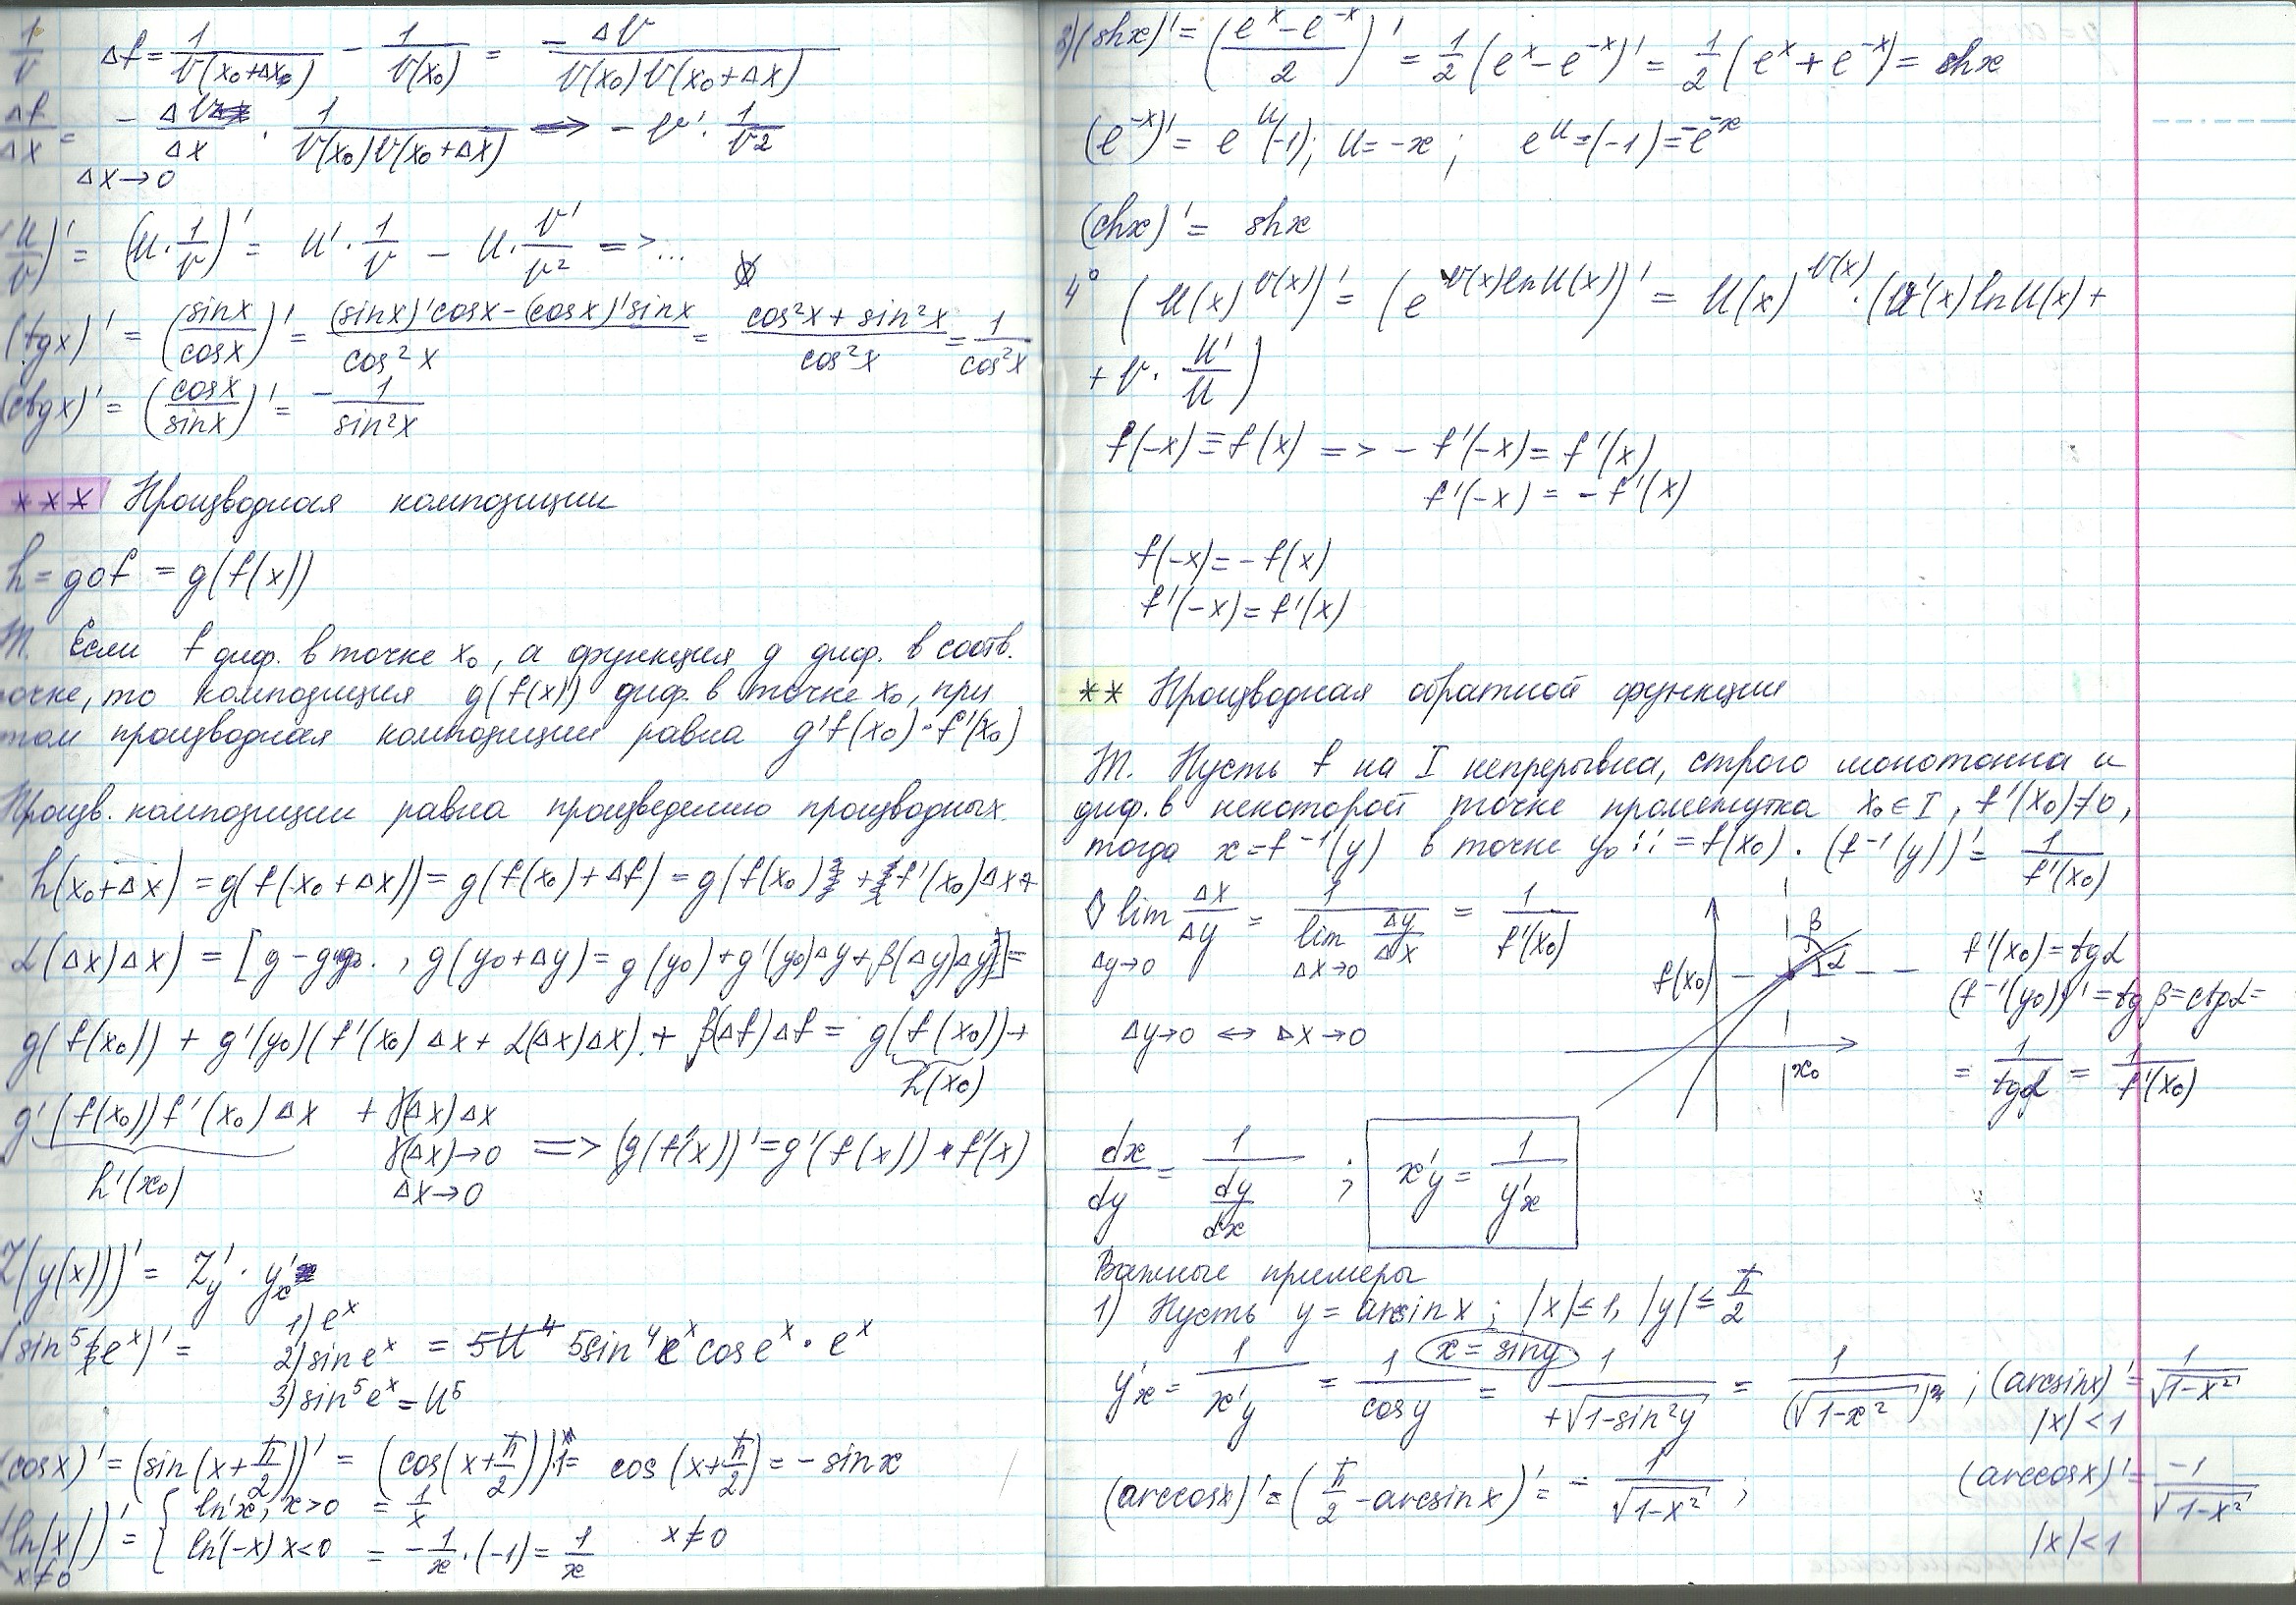 1/v Δf = 1/v(x₀+Δx₀) - 1/v(x₀) = -Δv/v(x₀)v(x₀+Δx)
Δf/Δx = - Δv/Δx · 1/v(x₀)v(x₀+Δx) => -v' · 1/v²
Δx→0
(u/v)' = (u·1/v)' = u'·1/v - u·v'/v² => ...
(tgx)' = (sinx/cosx)' = (sinx)'cosx-(cosx)'sinx/cos²x = cos²x + sin²x/cos²x = 1/cos²x
(ctgx)' = (cosx/sinx)' = -1/sin²x
*** Производная композиции
h = gof = g(f(x))
Т. Если f диф. в точке x₀, а функция g диф. в соотв.
очке, то композиция g(f(x)) диф. в точке x₀, при
том производная композиции равна g'f(x₀)·f'(x₀)
Произв. композиции равна произведению производных.
h(x₀+Δx) = g(f(x₀+Δx)) = g(f(x₀)+Δf) = g(f(x₀) + f'(x₀)Δx+
α(Δx)Δx) = [g - , g(y₀+Δy) = g(y₀)+g'(y₀)Δy+β(Δy)Δy] =
g(f(x₀)) + g'(y₀)(f'(x₀)Δx + α(Δx)Δx) + β(Δf)Δf = g(f(x₀))+
h(x₀)
g'(f(x₀))f'(x₀)Δx + γ(Δx)Δx
γ(Δx)→0 => (g(f(x))' = g'(f(x))·f'(x)
h'(x₀) Δx→0
Z(y(x)))' = Z'y · y'x
1) eˣ
(sin⁵(eˣ)' = 2) sin eˣ = 5u⁴ 5sin⁴eˣ cos eˣ · eˣ
3) sin⁵eˣ = u⁵
(cosx)' = (sin(x+π/2))' = (cos(x+π/2))·1 = cos(x+π/2) = -sinx
(ln|x|)' = { ln'x, x>0 = 1/x
x≠0 ln'(-x) x<0 = -1/x·(-1) = 1/x x≠0
3) (shx)' = (eˣ-e⁻ˣ/2)' = 1/2(eˣ-e⁻ˣ)' = 1/2(eˣ+e⁻ˣ) = shx
(e⁻ˣ)' = eᵘ(-1); u=-x; eᵘ=(-1)=-e⁻ˣ
(chx)' = shx
4° (u(x)^v(x))' = (e^v(x)lnu(x))' = u(x)^v(x)·(v'(x)lnu(x)+
+ v·u'/u)
f(-x) = f(x) => -f'(-x) = f'(x)
f'(-x) = -f'(x)
f(-x) = -f(x)
f'(-x) = f'(x)
** Производная обратной функции
Т. Пусть f на I непрерывна, строго монотонна и
диф. в некоторой точке промежутка x₀∈I, f'(x₀)≠0,
тогда x=f⁻¹(y) в точке y₀::=f(x₀). (f⁻¹(y))' = 1/f'(x₀)
◊ lim Δy→0 Δx/Δy = 1/lim Δx→0 Δy/Δx = 1/f'(x₀)
Δy→0 ⇔ Δx→0
β
α
f(x₀)
x₀
f'(x₀) = tgα
(f⁻¹(y₀))' = tgβ = ctgα =
= 1/tgα = 1/f'(x₀)
dx/dy = 1/dy/dx ; x'y = 1/y'x
Важные примеры
1) Пусть y = arcsinx; |x|≤1, |y|≤π/2
x = siny
y'x = 1/x'y = 1/cosy = 1/+√1-sin²y = 1/(√1-x²) ; (arcsinx)' = 1/√1-x²
|x|<1
(arccosx)' = (π/2 - arcsinx)' = -1/√1-x² ; (arccosx)' = -1/√1-x²
|x|<1